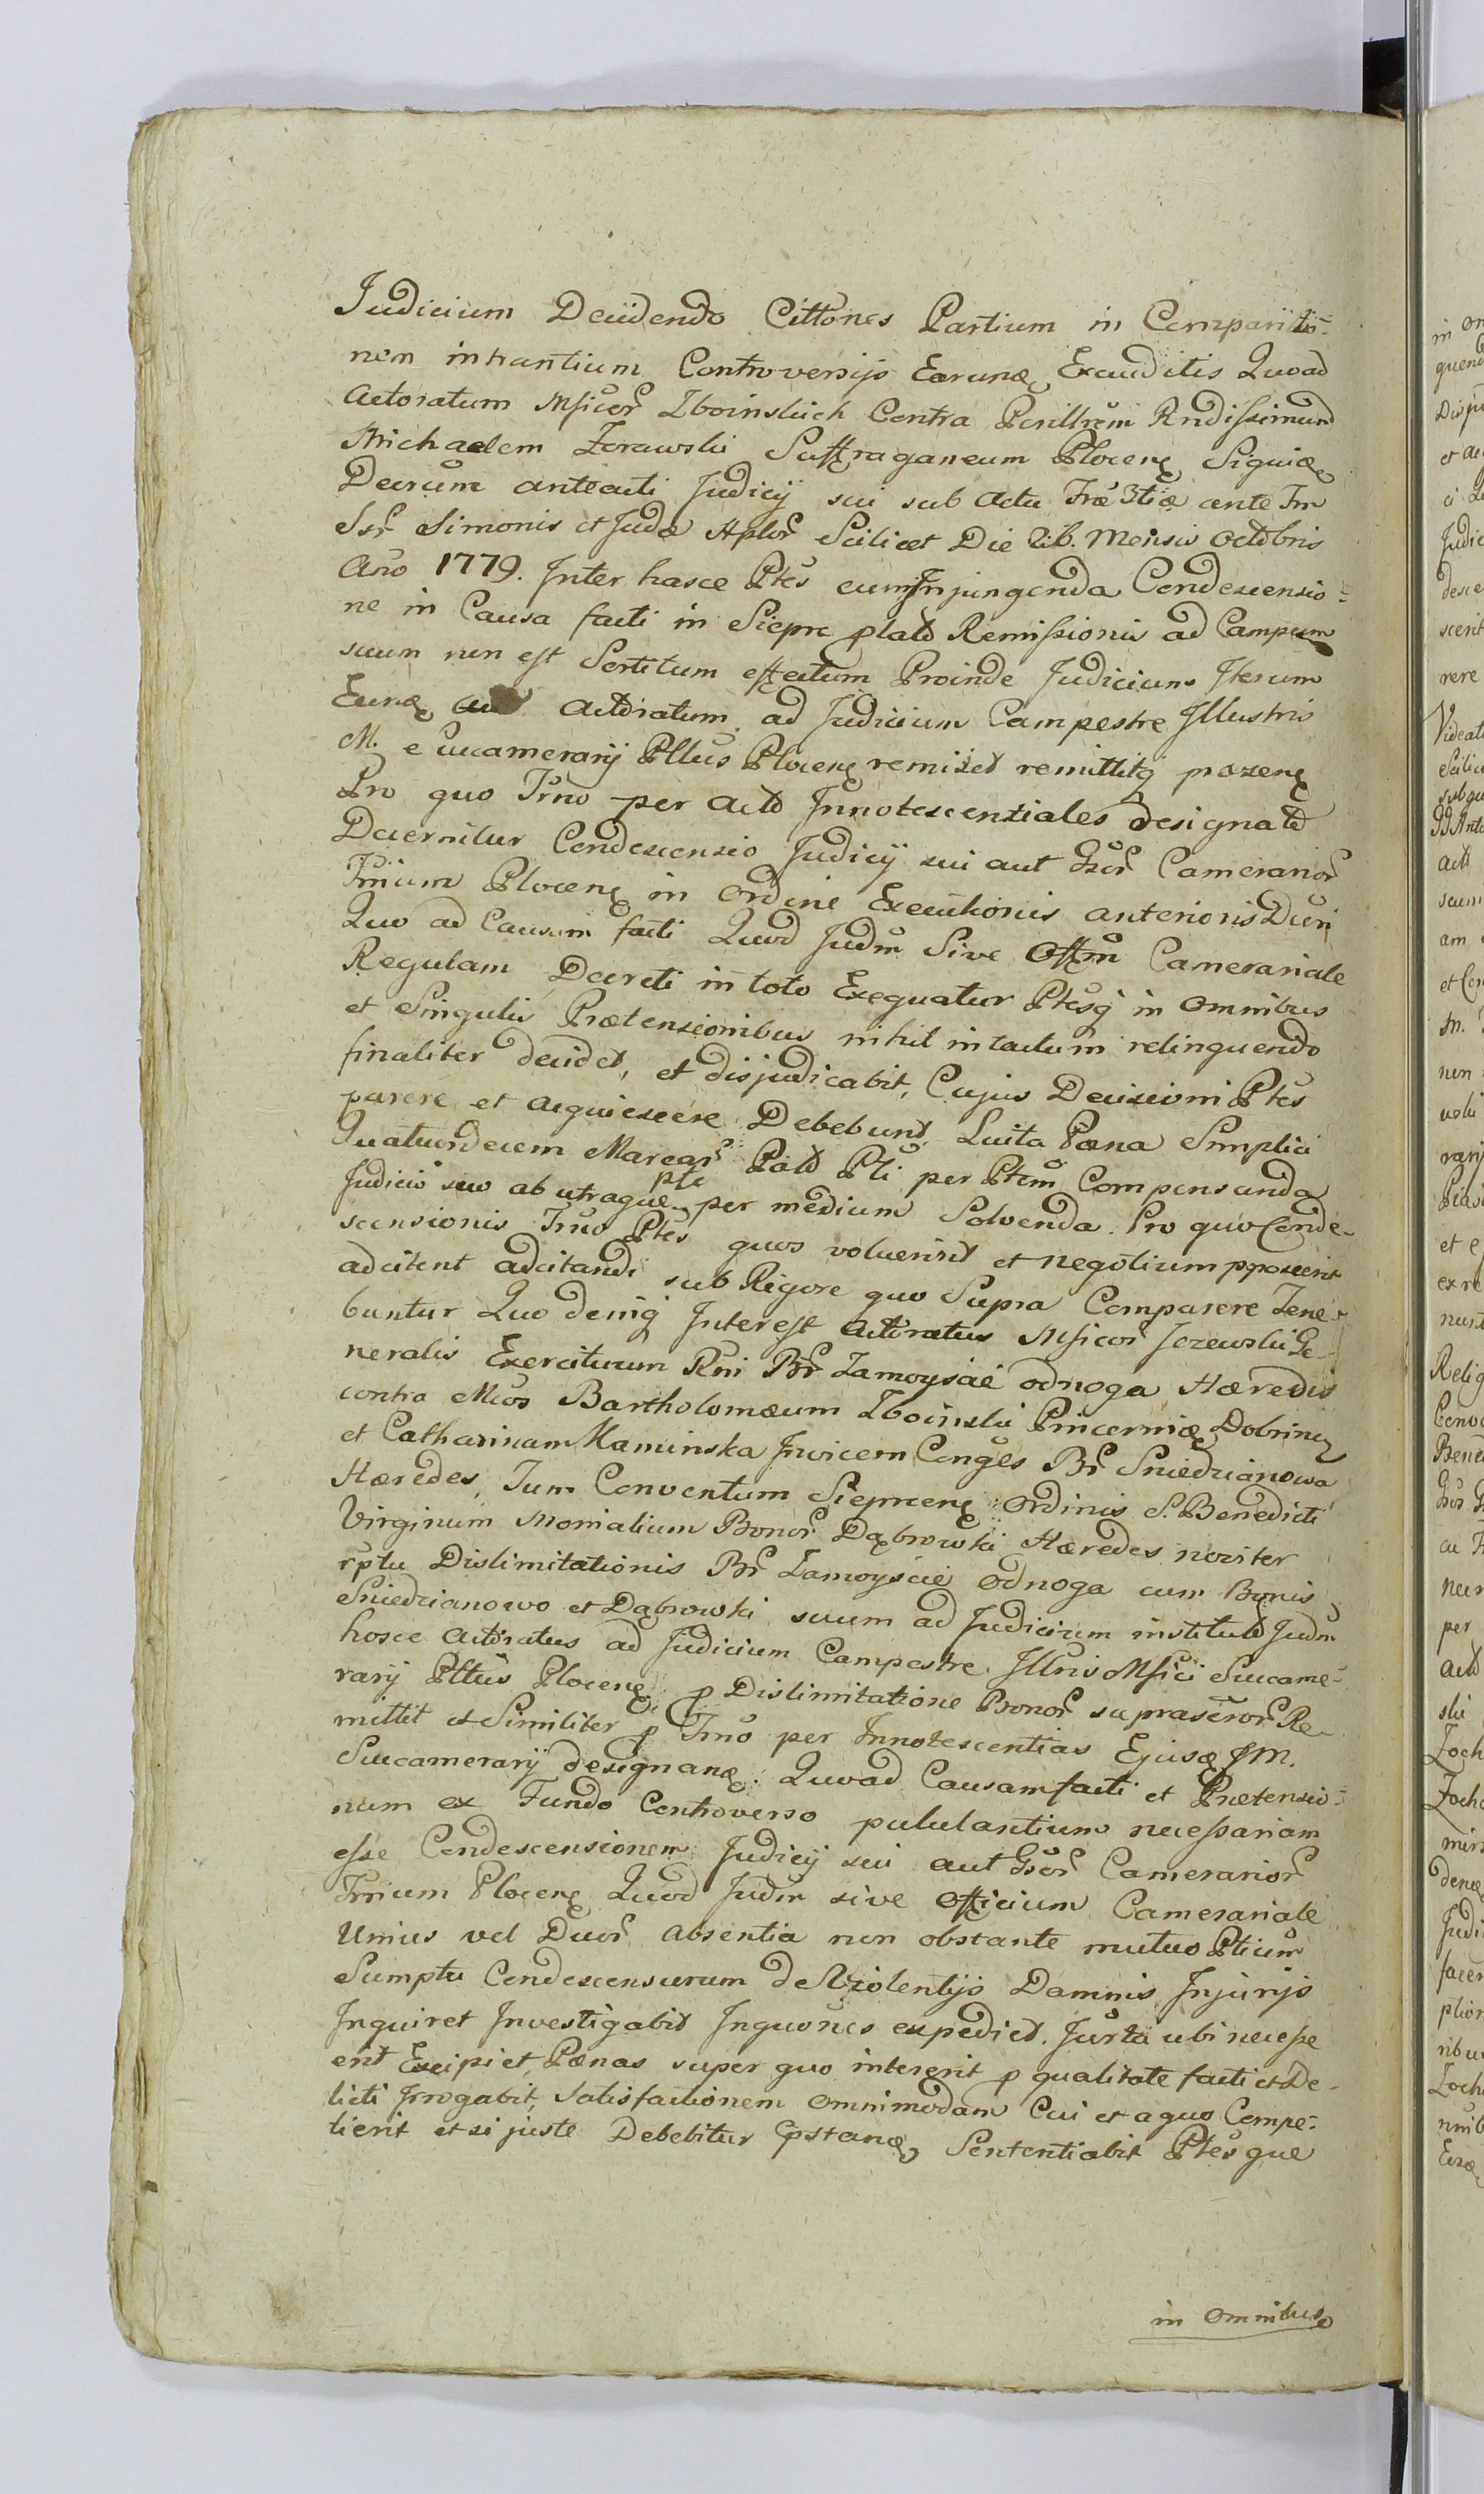 Judicium Decidendo Cittones Partium in Comparitio-
nem intrantium Controversijs Earunq Exauditis Quoad
Actoratum Msicor Zboinskich Contra Perillrem Rndissimum
Michaelem Zorawski Suffraganeum Plocenq Siquiq
Decrum anteacti Judicij sui sub Actu Fræ 3tiæ ante Fm
Ssr Simonis et Judæ Aplor Scilicet Die 26. Mensis Octobris
Ano 1779. Inter hasce Ptes cum Injungenda Condescensio-
ne in Causa facti in Siepre plato Remissionis ad Campum
suum non est Sortitum effectum Proinde Judicium Iterum
Eunq Actoratum ad Judicium Campestre Illustris
M. Succamerarij Pllus Plocenq remisit remittitq prozenq
Pro quo Trno per Acto Innotescentiales designato
Decernitur Condescensio Judicij sui aut Gsor Camerarior
Trium Plocenq in Ordine Executionis anterioris Duri
Quo ad Causam facti Quod Judm Sive Offm Camerariale
Regulam Decreti in toto Exequatur Ptesq in Omnibus
et Singulis Prætensionibus nihil intactum relinquendo
finaliter decidet, et disjudicabit, Cujus Decisioni Ptes
parere et acquiescere Debebunt Luita Pæna Simplici
Quatuordecem Marcar Pato Pti per Ptem Compensanda
Judicio suo ab utraque pte per medium Solvenda. Pro quo Conde-
scensionis Trno Ptes quos voluerint et negotium pposcerit
adcitent adcitandi sub Rigore quo Supra Comparere Tene-
buntur Quo deniq Interest Actoratus Msicor Jezewski Ge-
neralis Exercituum Rni Br Zamoyscie odnoga Hæredis
contra Mcos Bartholomæum Zboinski Pincerniæ Dobrinen
et Catharinam Kaminska Invicem Conges Br Sniedzianowa
Hæredes, Tum Conventum Siepracenq Ordinis S. Benedicti
Virginum Monialium Bonor Dąbrowski Hæredes noviter
rptu Dislimitationis Br Zamoyscie Odnoga cum Bonis
Sniedzianowo et Dąbrowski suum ad Judicium instituto Judm
hosce Actoratus ad Judicium Campestre Illris Msici Succame-
rarij Pltus Plocenq p Dislimitatione Bonor suprascror Re-
mittit et Similiter p Trno per Innotescentias Ejusq JM.
Succamerarij designanq. Quoad Causam facti et Prætensio-
num ex Fundo Controverso pululantium necessariam
esse Condescensionem Judicij sui aut Gsor Camerarior
Trium Plocenq Quod Judm sive Officium Camerariale
Unius vel Duor absentia non obstante mutuo Ptium
Sumptu Condescensurum de Violentijs Damnis Injurijs
Inquiret Investigabit Inquones expediet. Jurta ubi necesse
erit Excipiet, Pænas super quo intererit p qualitate facti et De-
licti Irrogabit, Satisfactionem Omnimodam Cui et a quo Compe-
tierit et si juste Debebitur Cpstanq Sententiabit Ptesque
in Omnibus